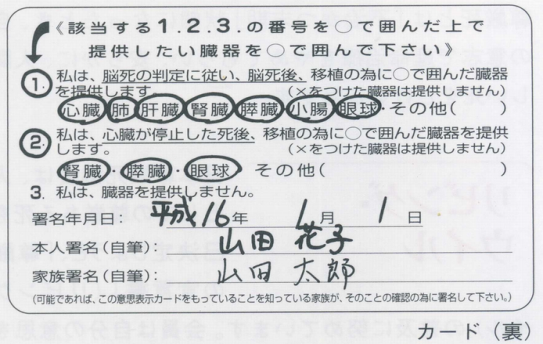 《該当する1.2.3.の番号を○で囲んだ上で
提供したい臓器を○で囲んで下さい》
1. 私は、脳死の判定に従い、脳死後、移植の為に○で囲んだ臓器
を提供します。 (×をつけた臓器は提供しません)
心臓・肺・肝臓・腎臓・膵臓・小腸・眼球・その他( )
2. 私は、心臓が停止した死後、移植の為に○で囲んだ臓器を提供
します。 (×をつけた臓器は提供しません)
腎臓・膵臓・眼球・その他( )
3. 私は、臓器を提供しません。
署名年月日: 平成16年 1月 1日
本人署名(自筆): 山田 花子
家族署名(自筆): 山田 太郎
(可能であれば、この意思表示カードをもっていることを知っている家族が、そのことの確認の為に署名して下さい。)
カード(裏)